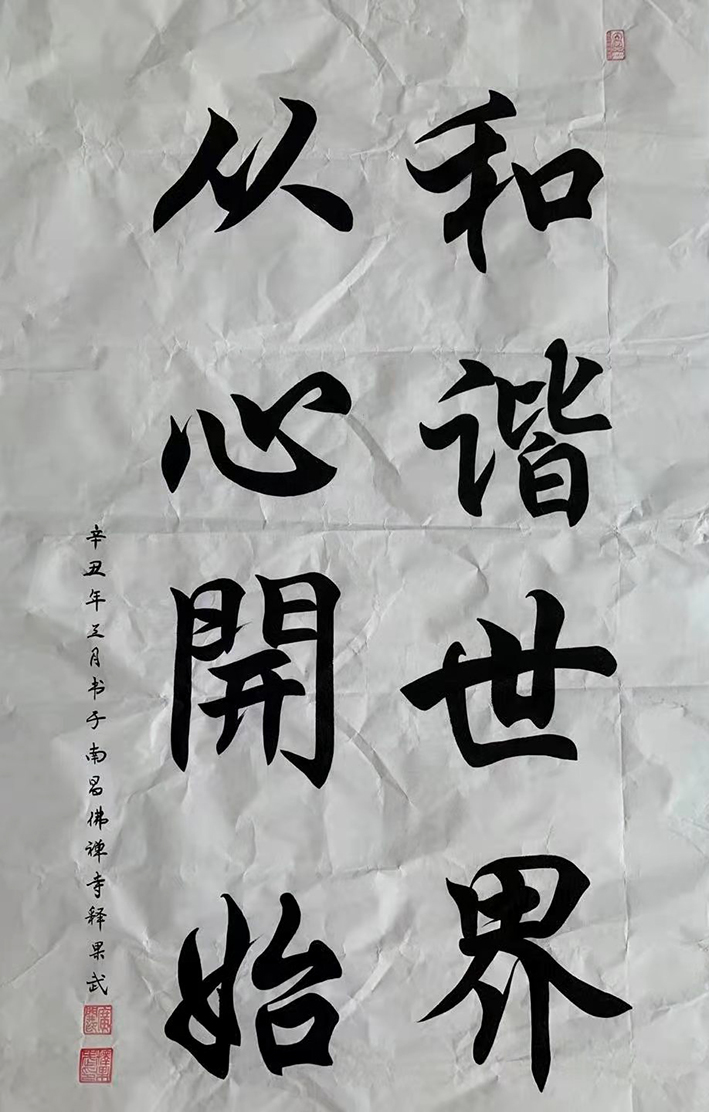 和谐世界
从心開始
辛丑年五月书于南昌佛禅寺释果武